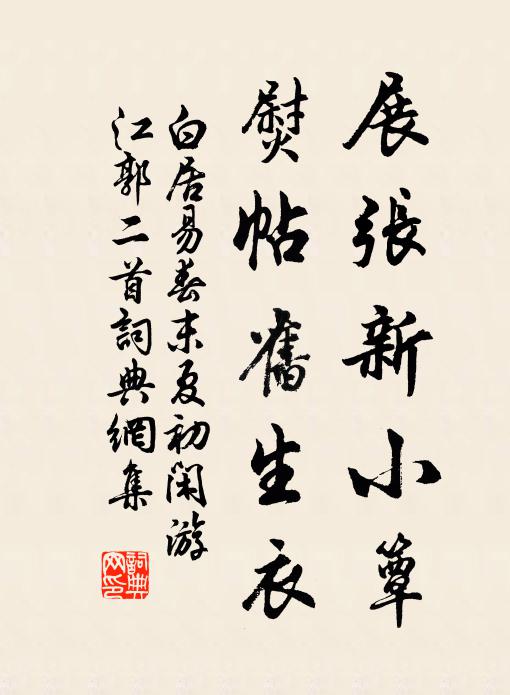 展張新小簟
熨帖舊生衣
白居易春末夏初閑游
江郭二首詞典網集
詞典
网印